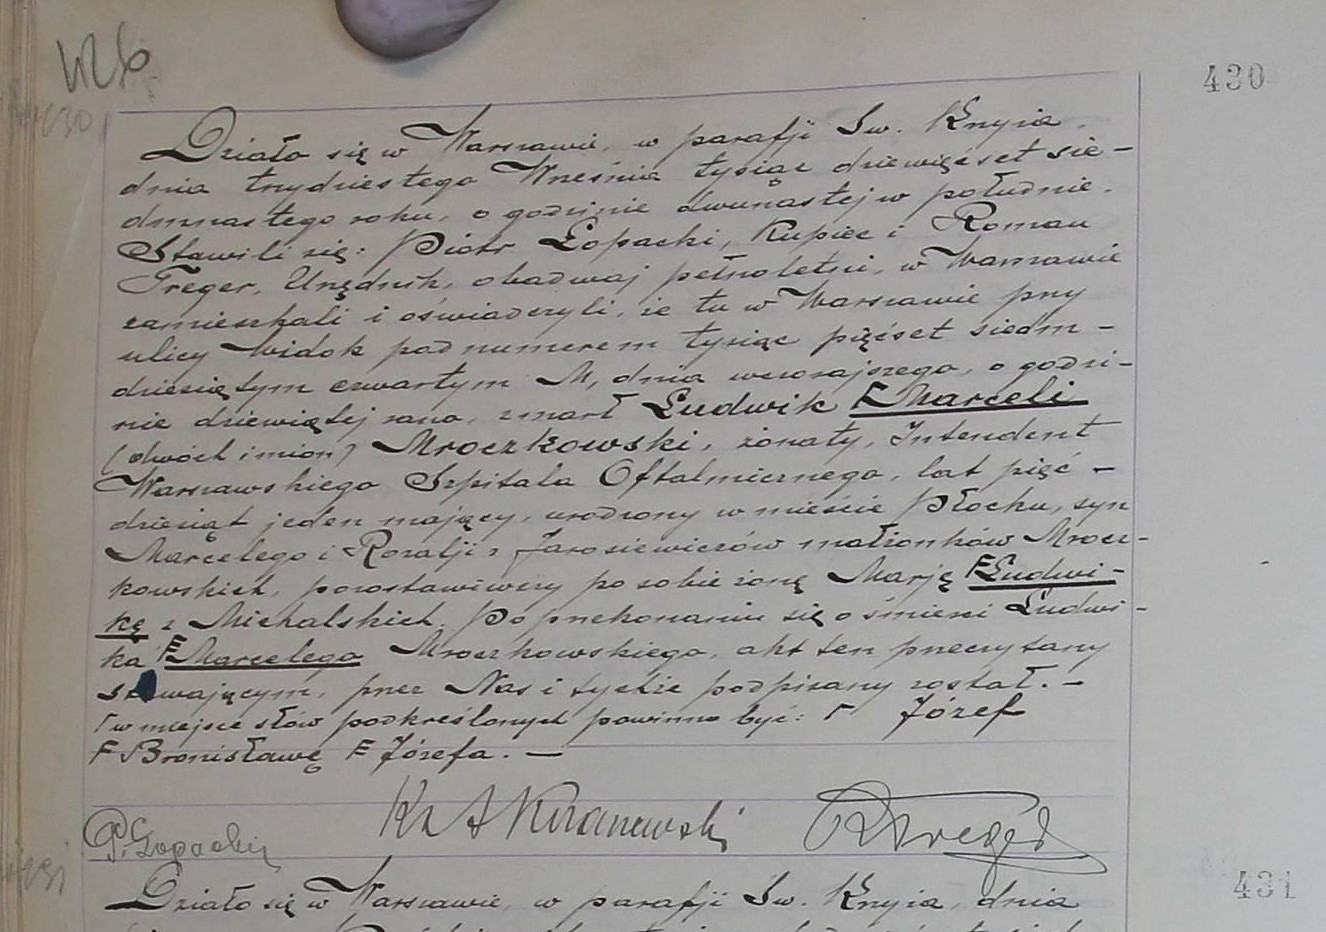 430
Działo się w Warszawie, w parafji Św. Krzyża,
dnia trzydziestego Września tysiąc dziewięćset sie-
dmnastego roku, o godzinie dwunastej w południe.
Stawili się: Piotr Łopacki, Kupiec i Roman
Treger, Urzędnik, obadwaj pełnoletni, w Warszawie
zamieszkali i oświadczyli, że tu w Warszawie przy
ulicy Widok pod numerem tysiąc pięćset siedm-
dziesiętym czwartym M, dnia wczorajszego, o godzi-
nie dziewiętej rano, zmarł Ludwik Marceli
(dwóch imion) Mroczkowski, żonaty, Intendent
Warszawskiego Szpitala Oftalmicznego, lat pięć-
dziesiąt jeden mający, urodzony w mieście Płocku, syn
Marcelego i Rozalji z Jarosiewiczów małżonków Mrocz-
kowskich, pozostawiwszy po sobie żonę Marję Ludwi-
kę z Michalskich. Po przekonaniu się o śmierci Ludwi-
ka Marcelego Mroczkowskiego, akt ten przeczytany
stawającym, przez Nas i tychże podpisany został. —
w miejsce słów podkreślonych powinno być: Józef
Bronisławę Józefa. —
P. Łopacki
431
Działo się w Warszawie, w parafji Św. Krzyża, dnia